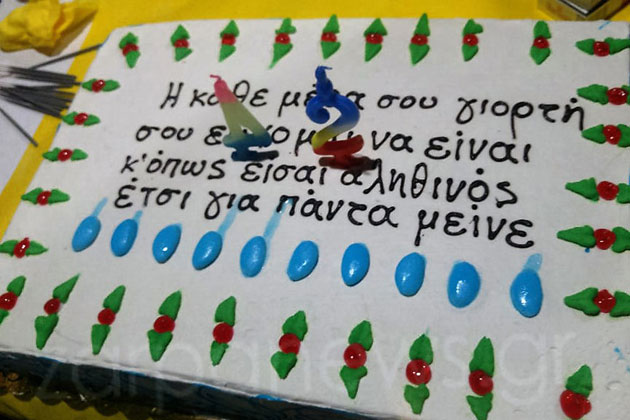 Η κάθε μέρα σου γιορτή
σου εύχομαι να είναι
κ'όπως εισαι αληθινός
έτσι για πάντα μείνε
42
zarpanews.gr